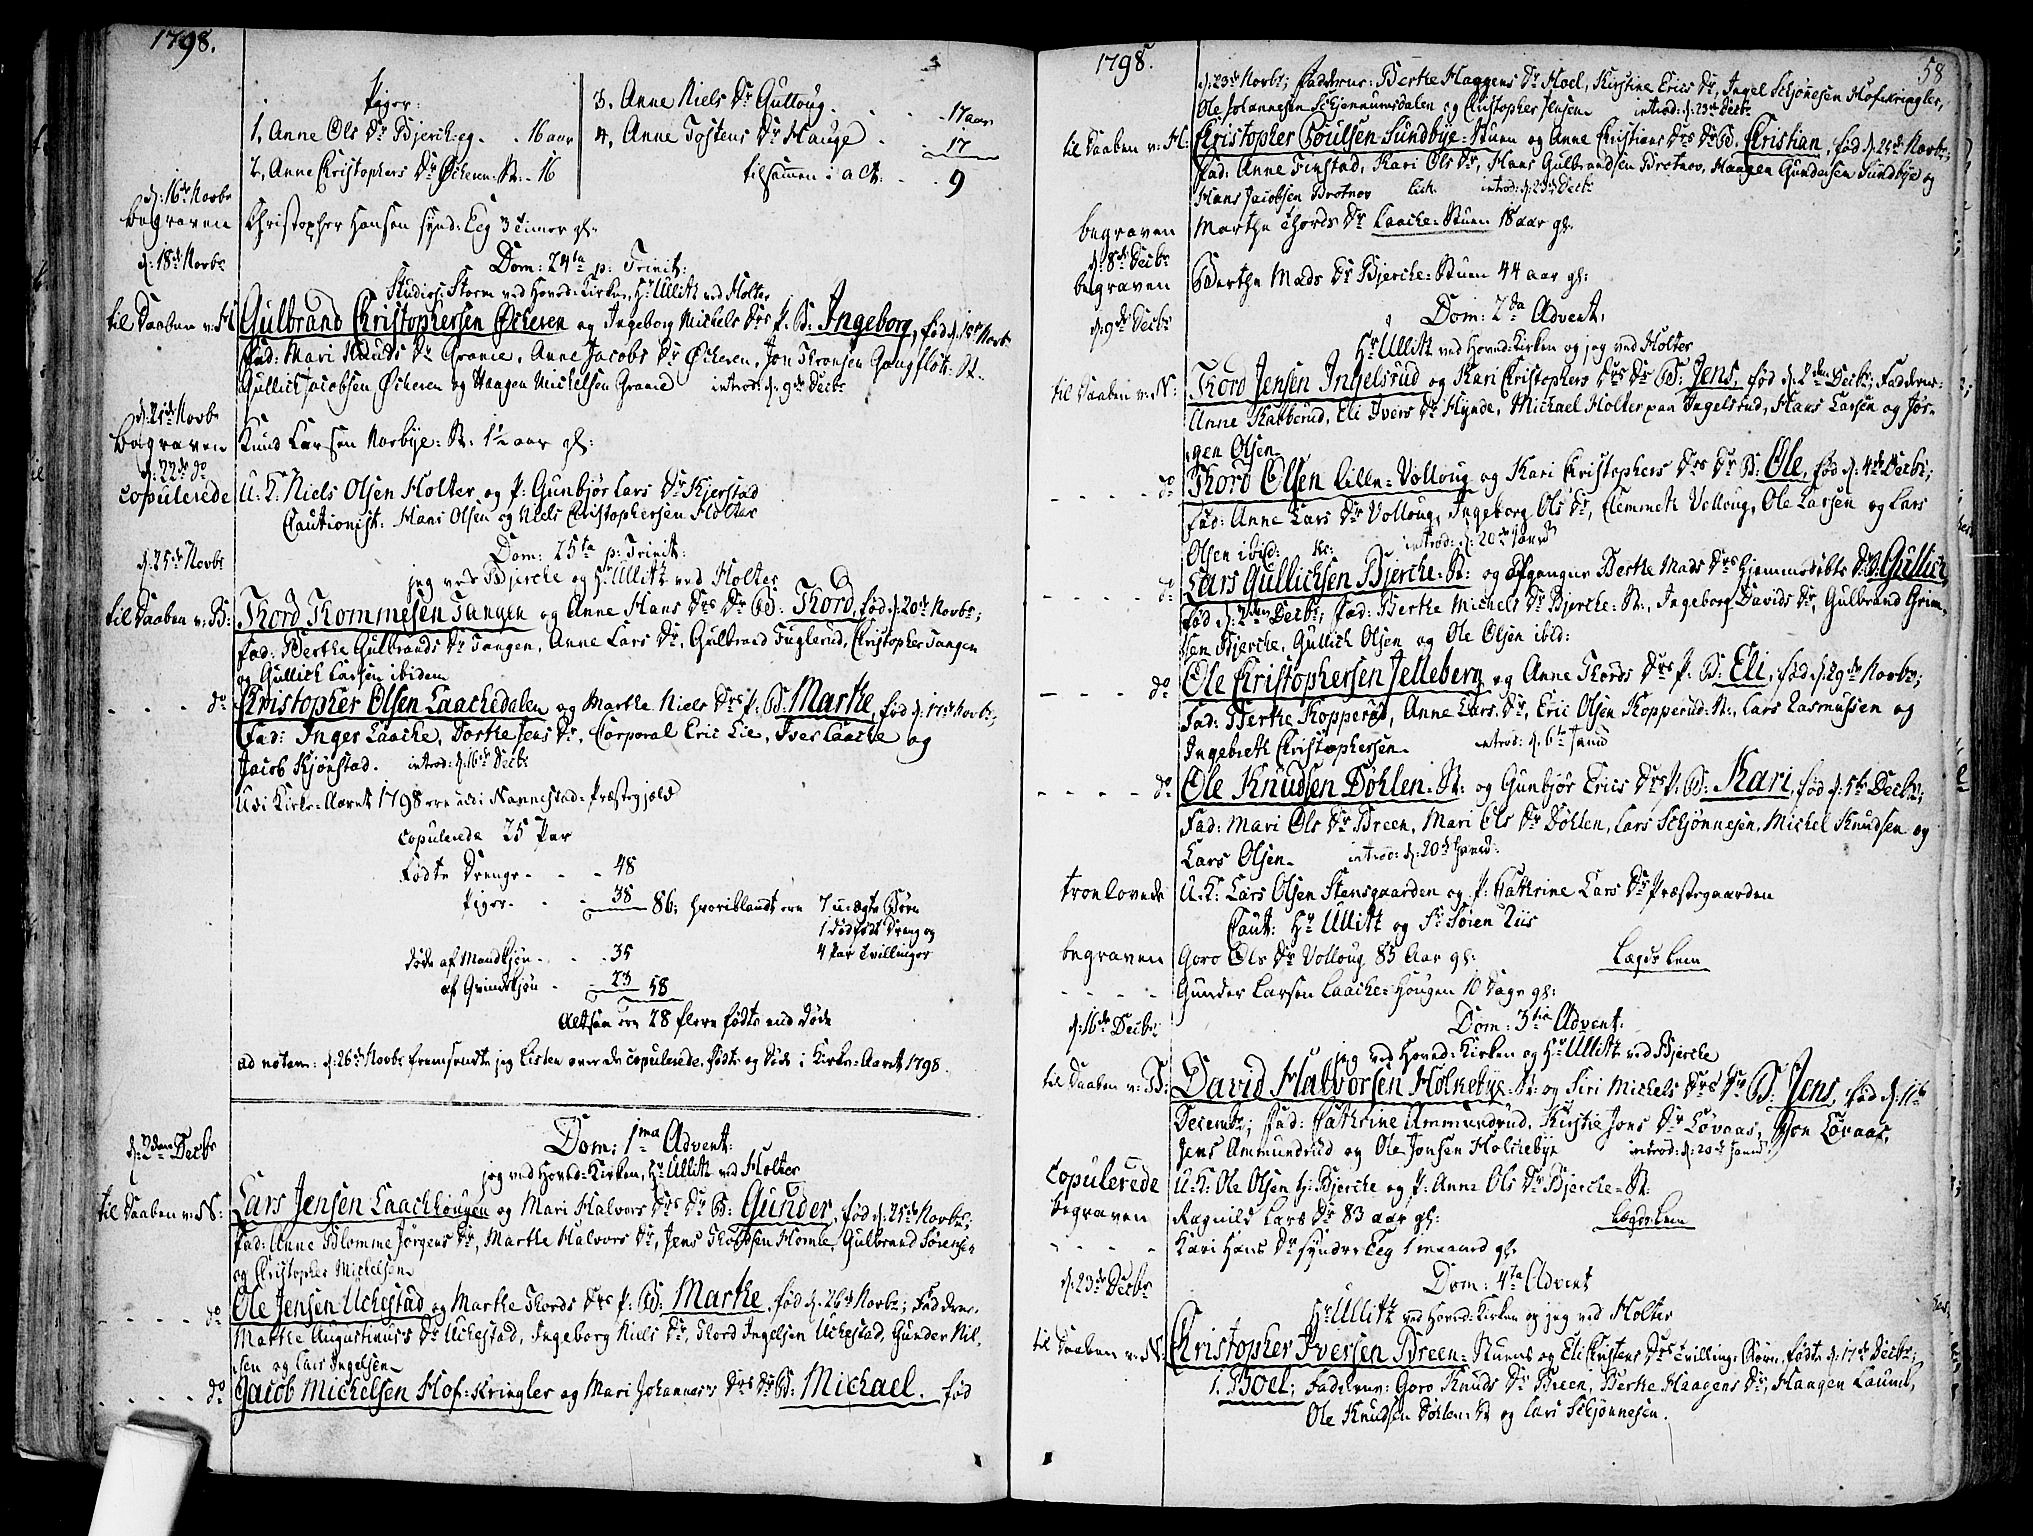 1798.
Piger:
1, Anne Ols Dr Bjerch-eg. - - 16 aar
2, Anne Christophers Dr Øcheren: St: - 16
3. Anne Niels Dr Gulloug - - - 17 aar
4. Anne Tostens Dr Hauge - - 17
tilsammen i alt. - - 9
d: 16de Novbr
begraven Christopher Hansen synd: Eeg 3 Timer gl:
d: 18de Novbr
Dom: 24ta p: Trinit:
Studios: Storm ved Hoved-Kirken, Hr Ullitz ved Holter
til Daaben v: H: Gulbrand Christophersen Øcheren og Ingeborg Michels Drs P. B: Ingeborg, fød d: 1ste Novbr
Fad: Mari Knuds Dr Granie, Anne Jacobs Dr Øcheren, Jon Thronsen Gangfløt: St.
Gullich Jacobsen Øcheren og Haagen Michelsen Graanie introd: d: 9de Decbr
d: 21de Novbr
begraven Knud Larsen Norbye: St: 1½ aar gl:
d: 22de do
copulerede U: K: Niels Olsen Holter, og P: Gunbjør Lars Dr Kjerstad
Cautionist: Hans Olsen og Niels Christophersen Holter
d: 25de Novbr
Dom: 25ta p: Trinit:
jeg ved Bjerche og Hr Ullitz ved Holter
til Daaben v: B: Thord Thommesen Tangen og Anne Hans Drs Dr B: Thord, fød d: 20de Novbr;
Fad: Berthe Gulbrands Dr Tangen, Anne Lars Dr, Gulbrand Fuglerud, Christopher Tangen
og Gullich Larsen ibidem
- - - - do Christopher Olsen Laachedalen og Marthe Niels Drs P: B: Marthe, fød d: 17de Novbr;
Fad: Inger Laache, Dorthe Jens Dr, Corporal Eric Lie, Iver Laache og
Jacob Kjønstad. introd: d: 16de Decbr
Udi Kirke-Aaret 1798 ere udi Nannestad-Præstegjeld
copulerede 25 Par
Fødte Drenge - - - 48
Piger - - - 38 86; hvoriblandt ere 7 uægte Børn
1 dødfødt Dreng og
4 Par Tvillinger
døde af Mandkjøn - - - 35
af Qvindekjøn - - 23 58
Altsaa ere 28 flere fødte end døde
ad notam: d: 26de Novbr fremsendte jeg Listen over de copulerede, fødte og døde i Kirke-Aaret 1798.
d: 2den Decbr
Dom: 1ma Advent:
jeg ved Hoved-Kirken, Hr Ullitz ved Holter
til Daaben v: N: Lars Jensen Laachhougen og Mari Halvors Drs Dr B: Gunder, fød d: 25de Novbr;
Fad: Anne Blomme Jørgens Dr, Marthe Halvors Dr, Jens Thordsen Homle, Gulbrand Sørensen
og Christopher Michelsen
- - - - do Ole Jensen Uchestad og Marthe Thords Drs P: B: Marthe, fød d: 26de Novbr; Faddere:
Marthe Augustinus Dr Uchestad, Ingeborg Niels Dr, Thord Ingelsen Uchestad, Gunder Nil-
sen og Lars Ingelsen
- - - - do Jacob Michelsen Hof-Kringler og Mari Johannes Drs Dr B: Michael. fød
1798. 58
d: 23de Novbr; Faddere: Berthe Haagens Dr Hoel, Kirstine Erics Dr, Ingel Schjønesen Hof-Kringler,
Ole Johannesen Schjennumsdalen og Christopher Jensen introd: d: 23de Decbr
til Daaben v: H: Christopher Poulsen Sundbye-Stuen og Anne Christians Drs Dr B. Christian, fød d: 25de Novbr;
Fad: Anne Finstad, Kari Ols Dr, Hans Gulbrandsen Brotnov, Haagen Gundersen Sundbye og
Hans Jacobsen Brotnov introd: d: 23de Decbr
begraven Marthe Thords Dr Laache-Stuen 18 aar gl:
d: 8de Decbr
begraven Berthe Mads Dr Bjerche-Stuen 44 aar gl:
d: 9de Decbr
Dom: 2da Advent,
Hr Ullitz ved Hoved-Kirken og jeg ved Holter
til Daaben v: N: Thord Jensen Ingelsrud og Kari Christophers Drs Dr B: Jens, fød d: 2den Decbr; Faddere:
Anne Kabberud, Eli Ivers Dr Hynde, Michael Holter paa Ingelsrud, Hans Larsen og Jør-
gen Olsen
- - - - do Thord Olsen lille-Volloug og Kari Christophers Drs Dr B: Ole, fød d: 4de Decbr;
Fad: Anne Lars Dr Volloug, Ingeborg Ols Dr, Clemmet Volloug, Ole Larsen og Lars
Olsen ibid: introd: d: 20de Janrd
- - - - do Lars Gullichsen Bjerche-St: og afgangne Berthe Mads Drs hjemmedøbte Dr B: Gullich,
fød d: 2den Decbr; Fad: Berthe Michels Dr Bjerche-St:, Ingeborg Davids Dr, Gulbrand Grim-
sen Bjerche, Gullich Olsen og Ole Olsen ibid:
- - - - do Ole Christophersen Jelleberg og Anne Thords Drs P: B: Eli, fød d: 29de Novbr;
Fad: Berthe Kopperud, Anne Lars Dr, Eric Olsen Kopperud-St:, Lars Rasmussen og
Ingebreth Christophersen introd: d: 6te Janrd
- - - - do Ole Knudsen Døhlen-St: og Gunbjør Erics Drs P: B: Kari, fød d: 5te Decbr;
Fad: Mari Ols Dr Breen, Mari Ols Dr Døhlen, Lars Schjønnesen, Michel Knudsen og
Lars Olsen introd: d: 20de Janrd:
trolovede U: K: Lars Olsen Stensgaarden og P: Cathrine Lars Dr Præstegaarden
Caut: Hr Ullitz og Sr Søren Riis
begraven Goro Ols Dr Volloug 85 Aar gl: Lægds Lem
- - - - Gunder Larsen Laache-Hougen 10 Dage gl:
d: 16de Decbr
Dom: 3tia Advent:
jeg ved Hoved-Kirken og Hr Ullitz ved Bjerche
til Daaben v: B: David Halvorsen Holkebye-St: og Siri Michels Drs Dr B: Jens, fød d: 11te
Decembr; Fad: Cathrine Ammundrud, Kirstie Jons Dr Løvaas, Jon Løvaas,
Jens Ammundrud og Ole Jonsen Holkebye introd: d: 20de Janrd.
copulerede U: K: Ole Olsen h: Bjerche og P: Anne Ols Dr Bjerche-St:
begraven Ragnild Lars Dr 83 aar gl: Lægds Lem
- - - - Kari Hans Dr syndre Eeg 1 maaned gl:
d: 23de Decbr
Dom: 4ta Advent
Hr Ullitz ved Hoved-Kirken og jeg ved Holter
til Daaben v: N: Christopher Iversen Breen-Stuens og Eli Christens Drs Tvilling-Børn, fødte d: 17de Decbr;
1. Boel; Faddere: Goro Knuds Dr Breen, Berthe Haagens Dr, Haagen Laurul,
Ole Knudsen Døhlen-St og Lars Schjønnesen.